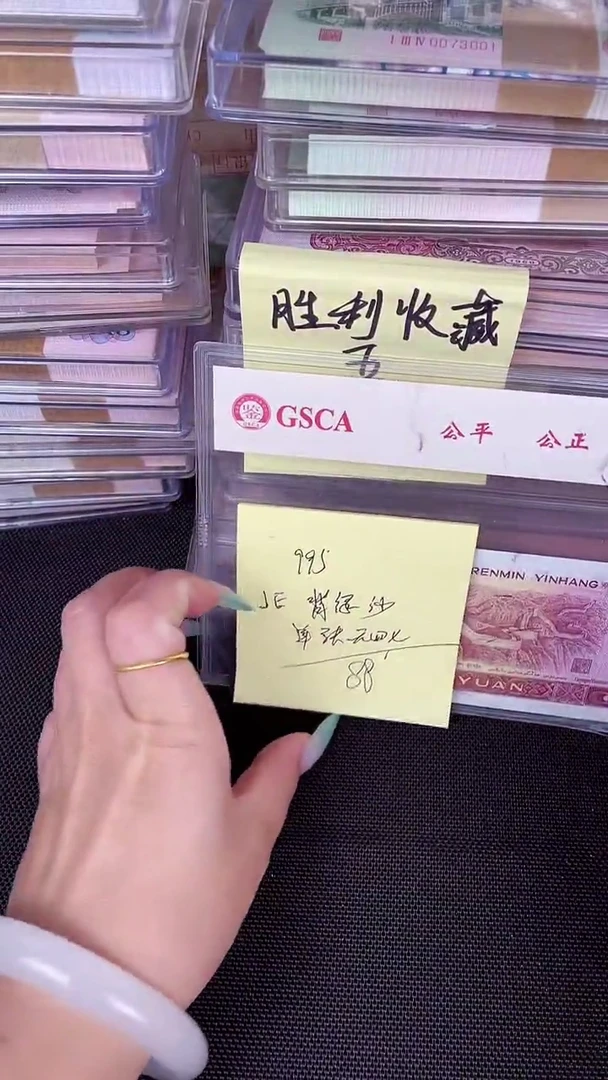 ⅠⅢⅣ0073001
胜利收藏
GSCA
公平 公正
995
JE 背绿水
单张无四七
88
RENMIN YINHANG
YUAN